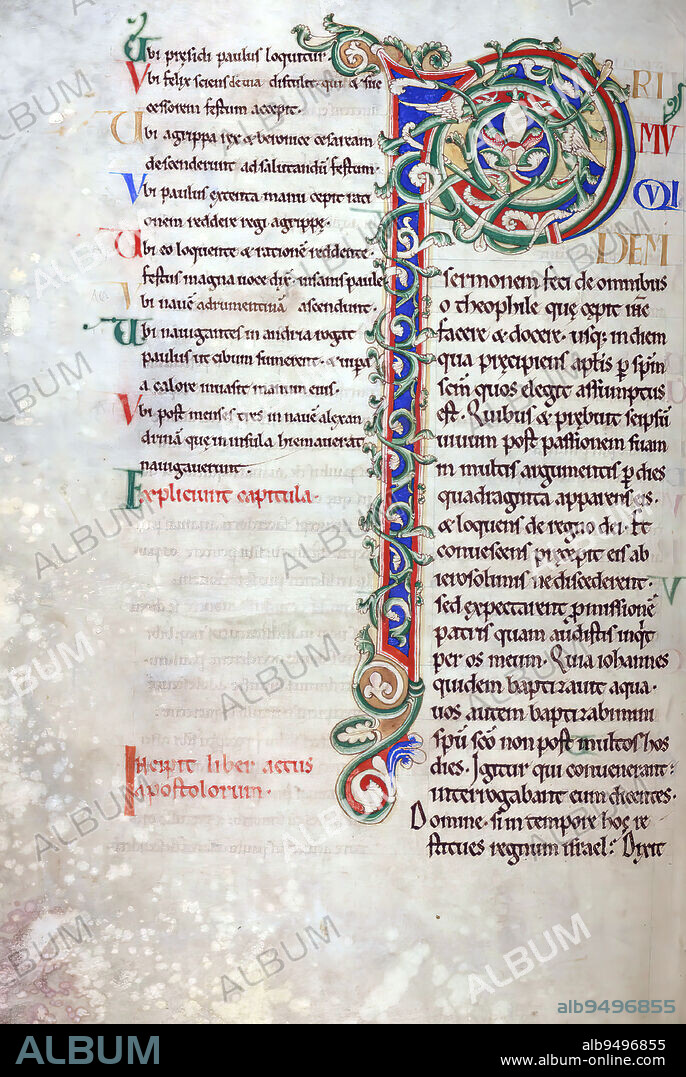 Ubi presidi paulus loquitur.
Ubi felix sciens de uia distulit. qui & suc
cessorem festum accepit.
Ubi agrippa rex & beronice cesaream
descenderunt ad salutandū festum.
Ubi paulus extenta manu cepit rati
onem reddere regi agrippę.
Ubi eo loquente & rationē reddente.
festus magna uoce dix̄. insanis paule
Ubi nauē adrumentinā ascendunt.
Ubi nauigantes in andria rogit
paulus ut cibum sumerent. & uipa
a calore inuasit manum eius.
Ubi post menses tres in nauē alexan
drinā que in insula hiemauerat
nauigauerunt.
Expliciunt capitula.
Incipit liber actus
apostolorum.
PRI
MV
QVI
DEM
sermonem feci de omnibus
o theophile que cepit ihc
facere & docere. usq; in diem
qua precipiens aptis p spm
scm quos elegit assumptus
est. Quibus & prebuit seipsū
uiuum post passionem suam
in multis argumentis p dies
quadraginta apparens eis.
& loquens de regno dei. Et
conuescens precepit eis ab
ierosolimis ne discederent.
sed expectarent pmissionē
patris quam audistis inqt
per os meum. Quia iohannes
quidem baptizauit aqua.
uos autem baptizabimini
spū scō non post multos hos
dies. Igitur qui conuenerant.
interrogabant eum dicentes.
Domine. si in tempore hoc re
stitues regnum israel? Dixit
ALBUM
alb9496855
ALBUM
alb9496855
www.album-online.com